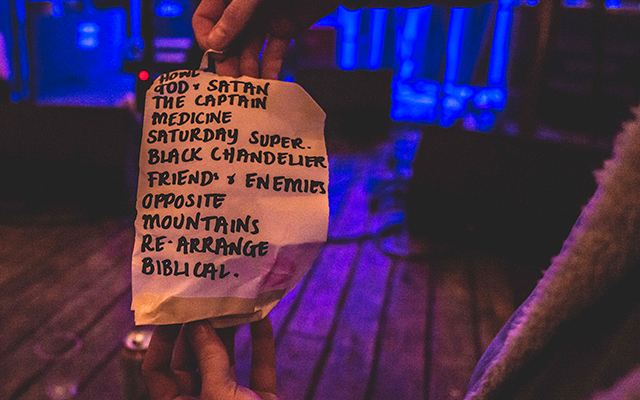 HOWL
GOD & SATAN
THE CAPTAIN
MEDICINE
SATURDAY SUPER.
BLACK CHANDELIER
FRIENDS & ENEMIES
OPPOSITE
MOUNTAINS
RE-ARRANGE
BIBLICAL.